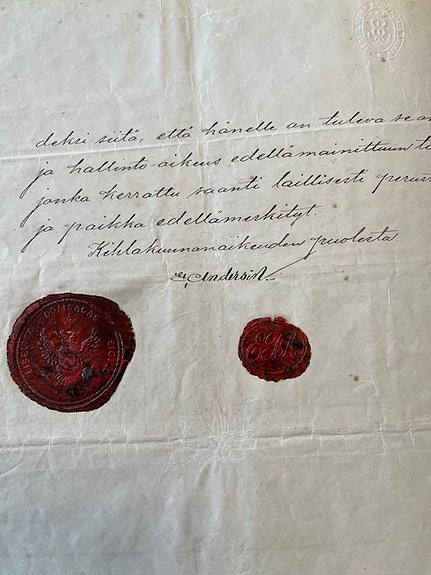 deksi siitä, että hänelle on tuleva se
ja hallinto-oikeus edellämainittuun
jonka kerrattu saanti laillisesti
ja paikka edellämerkityt.
Kihlakunnanoikeuden puolesta
Andersin
DOMSAGAS